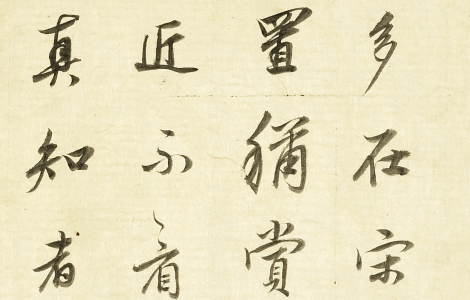 多在宋
置穪賞
近不
真知者